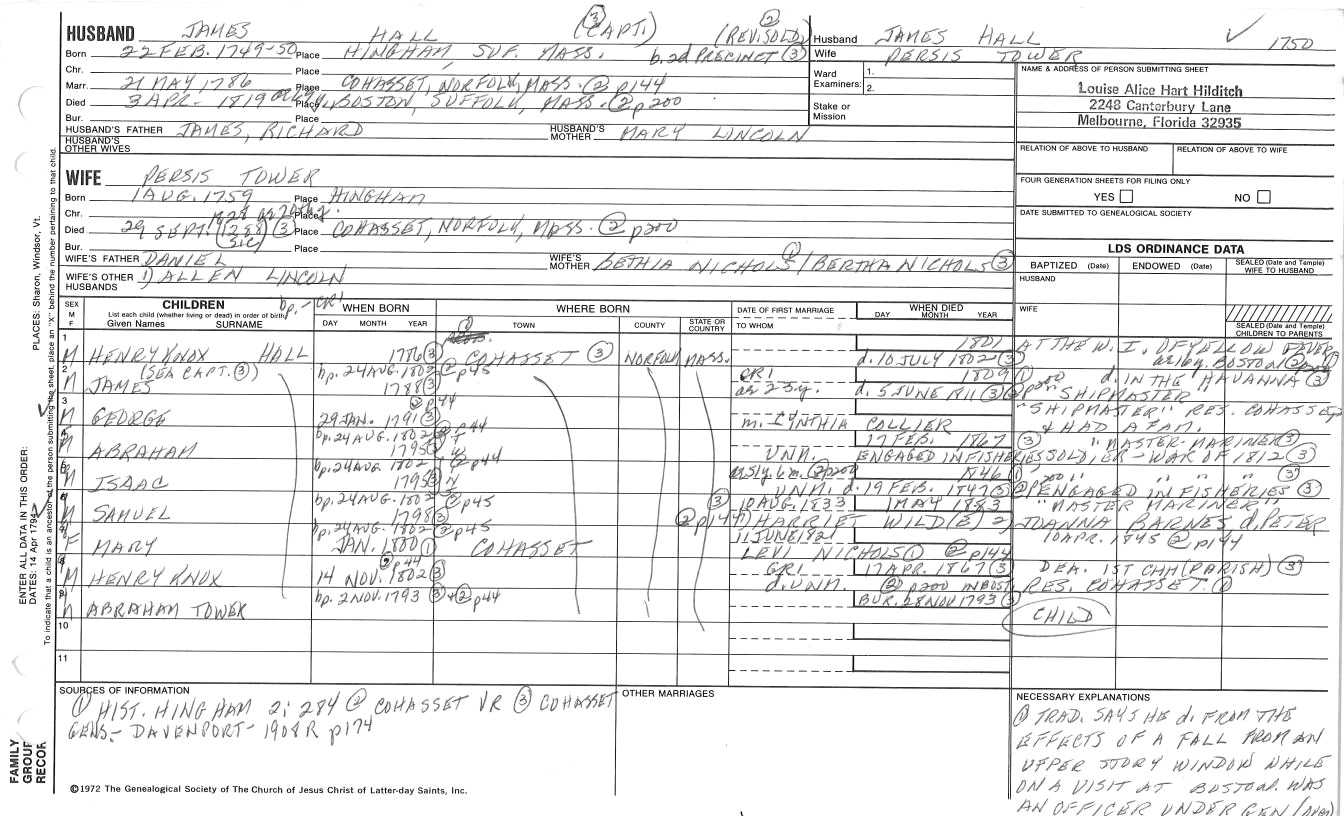 HUSBAND JAMES HALL (CAPT.) ③ (REV. SOLD) ②
Born 22 FEB. 1749-50 Place HINGHAM, SUF. MASS. b. 2d PRECINCT ③
Chr. Place
Marr. 21 MAY 1786 Place COHASSET, NORFOLK, MASS. ② p144
Died 3 APR. 1819 Place BOSTON, SUFFOLK, MASS. ② p200
Bur. Place
HUSBAND'S FATHER JAMES, RICHARD HUSBAND'S MOTHER MARY LINCOLN
HUSBAND'S OTHER WIVES
Husband JAMES HALL 1750
Wife PERSIS TOWER
Ward Examiners: 1. 2.
Stake or Mission
NAME & ADDRESS OF PERSON SUBMITTING SHEET
Louise Alice Hart Hilditch
2248 Canterbury Lane
Melbourne, Florida 32935
RELATION OF ABOVE TO HUSBAND RELATION OF ABOVE TO WIFE
FOUR GENERATION SHEETS FOR FILING ONLY
YES NO
DATE SUBMITTED TO GENEALOGICAL SOCIETY
WIFE PERSIS TOWER
Born 1 AUG. 1759 Place HINGHAM
Chr. Place
Died 29 SEPT. 1288 (SIC) ③ Place COHASSET, NORFOLK, MASS. ② p200
Bur. Place
WIFE'S FATHER DANIEL WIFE'S MOTHER BETHIA NICHOLS ① / BERTHA NICHOLS ③
WIFE'S OTHER HUSBANDS 1) ALLEN LINCOLN
LDS ORDINANCE DATA
BAPTIZED (Date) ENDOWED (Date) SEALED (Date and Temple) WIFE TO HUSBAND
HUSBAND
WIFE
SEALED (Date and Temple) CHILDREN TO PARENTS
SEX M F
CHILDREN
List each child (whether living or dead) in order of birth
Given Names SURNAME
bp. - CR1
WHEN BORN
DAY MONTH YEAR
WHERE BORN
TOWN COUNTY STATE OR COUNTRY
DATE OF FIRST MARRIAGE
TO WHOM
WHEN DIED
DAY MONTH YEAR
1 M HENRY KNOX HALL 1786 ③ COHASSET ③ NORFOLK MASS. 1801 d. 10 JULY 1802 ③ AT THE W. I. OF YELLOW FEVER
(SEA CAPT. ③) bp. 24 AUG. 1802 ② p45 CR1 1809
2 M JAMES 1788 ③ d. 5 JUNE 1811 ③ d. IN THE HAVANNA ③ "SHIPMASTER"
② p44
3 M GEORGE 29 JAN. 1791 ③ m. CYNTHIA COLLIER "SHIPMASTER" RES. COHASSET & HAD A FAM.
bp. 24 AUG. 1802 ② p44 17 FEB. 1867 ③ "MASTER-MARINER" ③
4 M ABRAHAM 1795 UNM. ENGAGED IN FISHERIES SOLDIER - WAR OF 1812 ③
bp. 24 AUG. 1802 ② p44 1846
5 M ISAAC 1795 ③ UNM. d. 19 FEB. 1847 ③ ENGAGED IN FISHERIES ③
bp. 24 AUG. 1802 ② p45 10 AUG. 1833 1 MAY 1883 "MASTER MARINER"
6 M SAMUEL 1798 ③ ② p144 1) HARRIET WILD(E) 2) JOANNA BARNES d. PETER
bp. 24 AUG. 1802 ② p45 11 JUNE 1821 10 APR. 1845 ② p144
7 F MARY JAN. 1800 ① COHASSET LEVI NICHOLS ① ② p144
② p44
8 M HENRY KNOX 14 NOV. 1802 ③ GR1 17 APR. 1867 ③ d. UNM. ② p200 IN BOST DEA. 1ST CHH (PARISH) ③ RES. COHASSET. ①
9 M ABRAHAM TOWER bp. 2 NOV. 1793 ③ + ② p44 BUR. 28 NOV 1793 ③ CHILD
10
11
SOURCES OF INFORMATION
① HIST. HINGHAM 2: 284 ② COHASSET VR ③ COHASSET
GENS. - DAVENPORT - 1909 R p174
OTHER MARRIAGES
NECESSARY EXPLANATIONS
① TRAD. SAYS HE d. FROM THE
EFFECTS OF A FALL FROM AN
UPPER STORY WINDOW WHILE
ON A VISIT AT BOSTON. WAS
AN OFFICER UNDER GEN
©1972 The Genealogical Society of The Church of Jesus Christ of Latter-day Saints, Inc.
FAMILY GROUP RECOR
ENTER ALL DATA IN THIS ORDER:
DATES: 14 Apr 1794
PLACES: Sharon, Windsor, Vt.
To indicate that a child is an ancestor of the person submitting the sheet, place an "X" behind the number pertaining to that child.